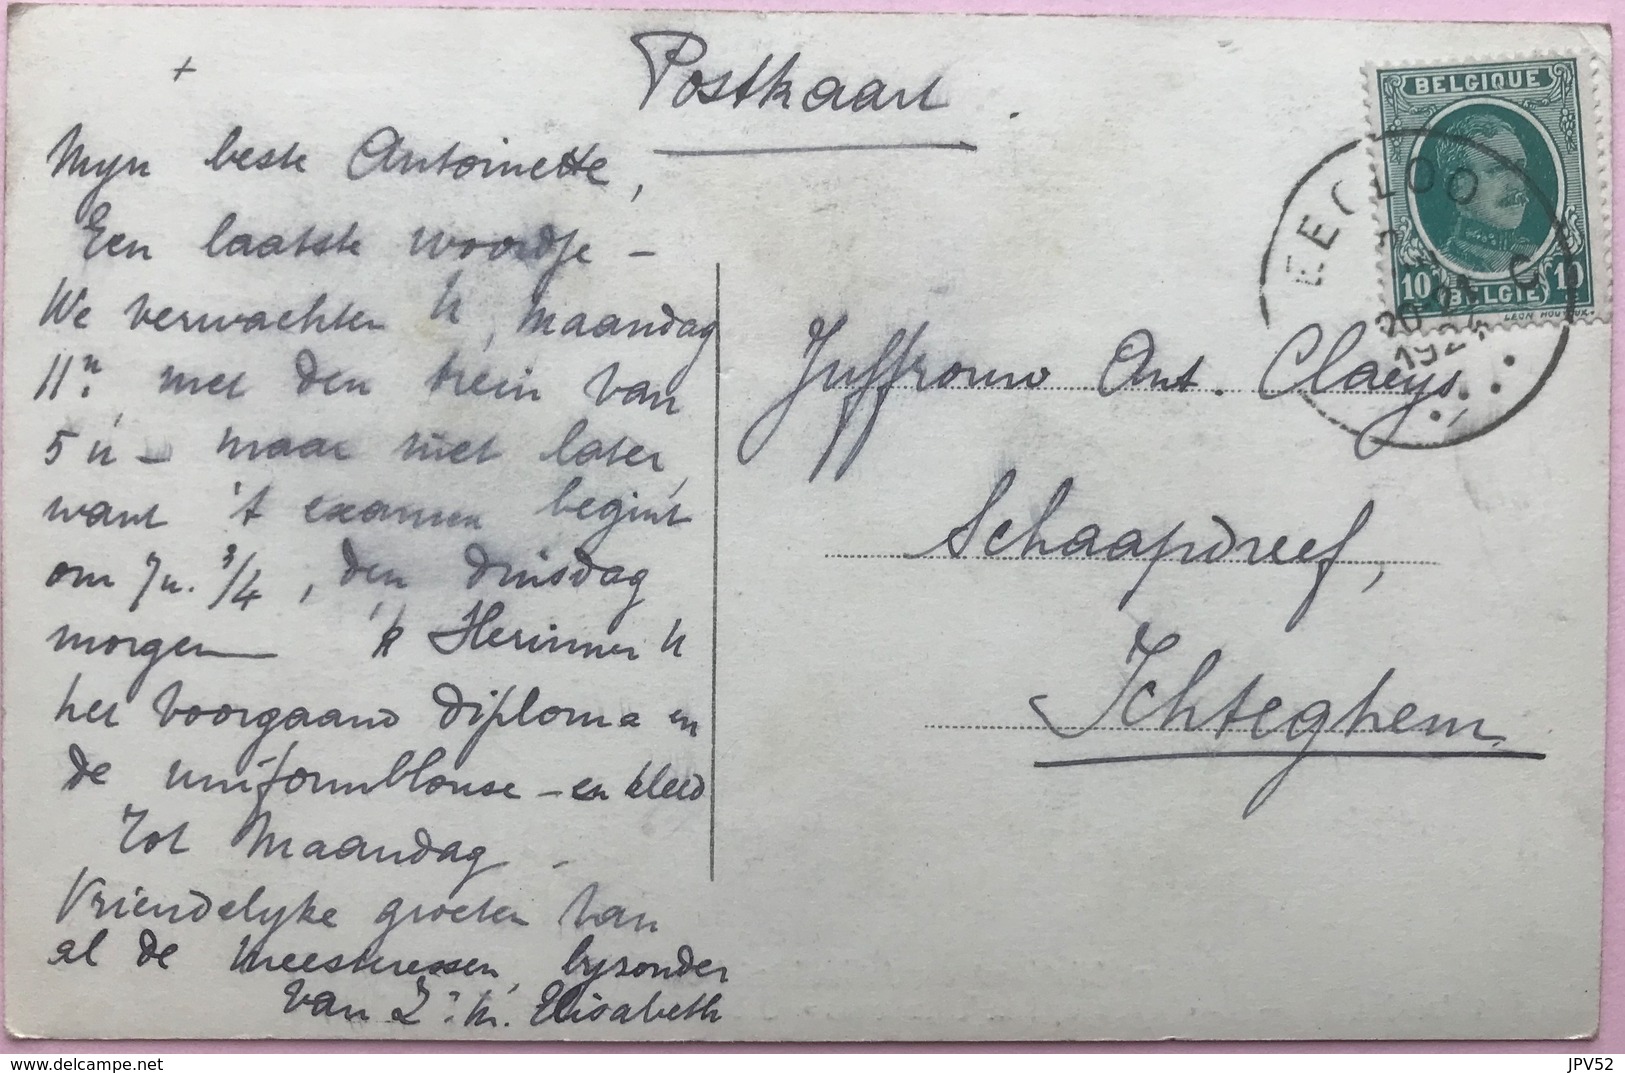 +
Postkaart.
Mijn beste Antoinette,
Een laatste woordje –
We verwachten U, Maandag
11n, met den trein van
5 u – maar niet later,
want 't examen begint
om 7u. 3/4, den dinsdag
morgen 'k Herinner U
het voorgaand diploma en
de uniformblouse – en kleed
Tot Maandag –
Vriendelyke groeten van
al de meesteressen, byzonder
van Z. M. Elisabeth
BELGIQUE
10 BELGIE 10
LEON HOUYOUX.
EECLOO
Juffrouw Ant. Claeys,
Schaapdreef,
Ichteghem.
JPV52